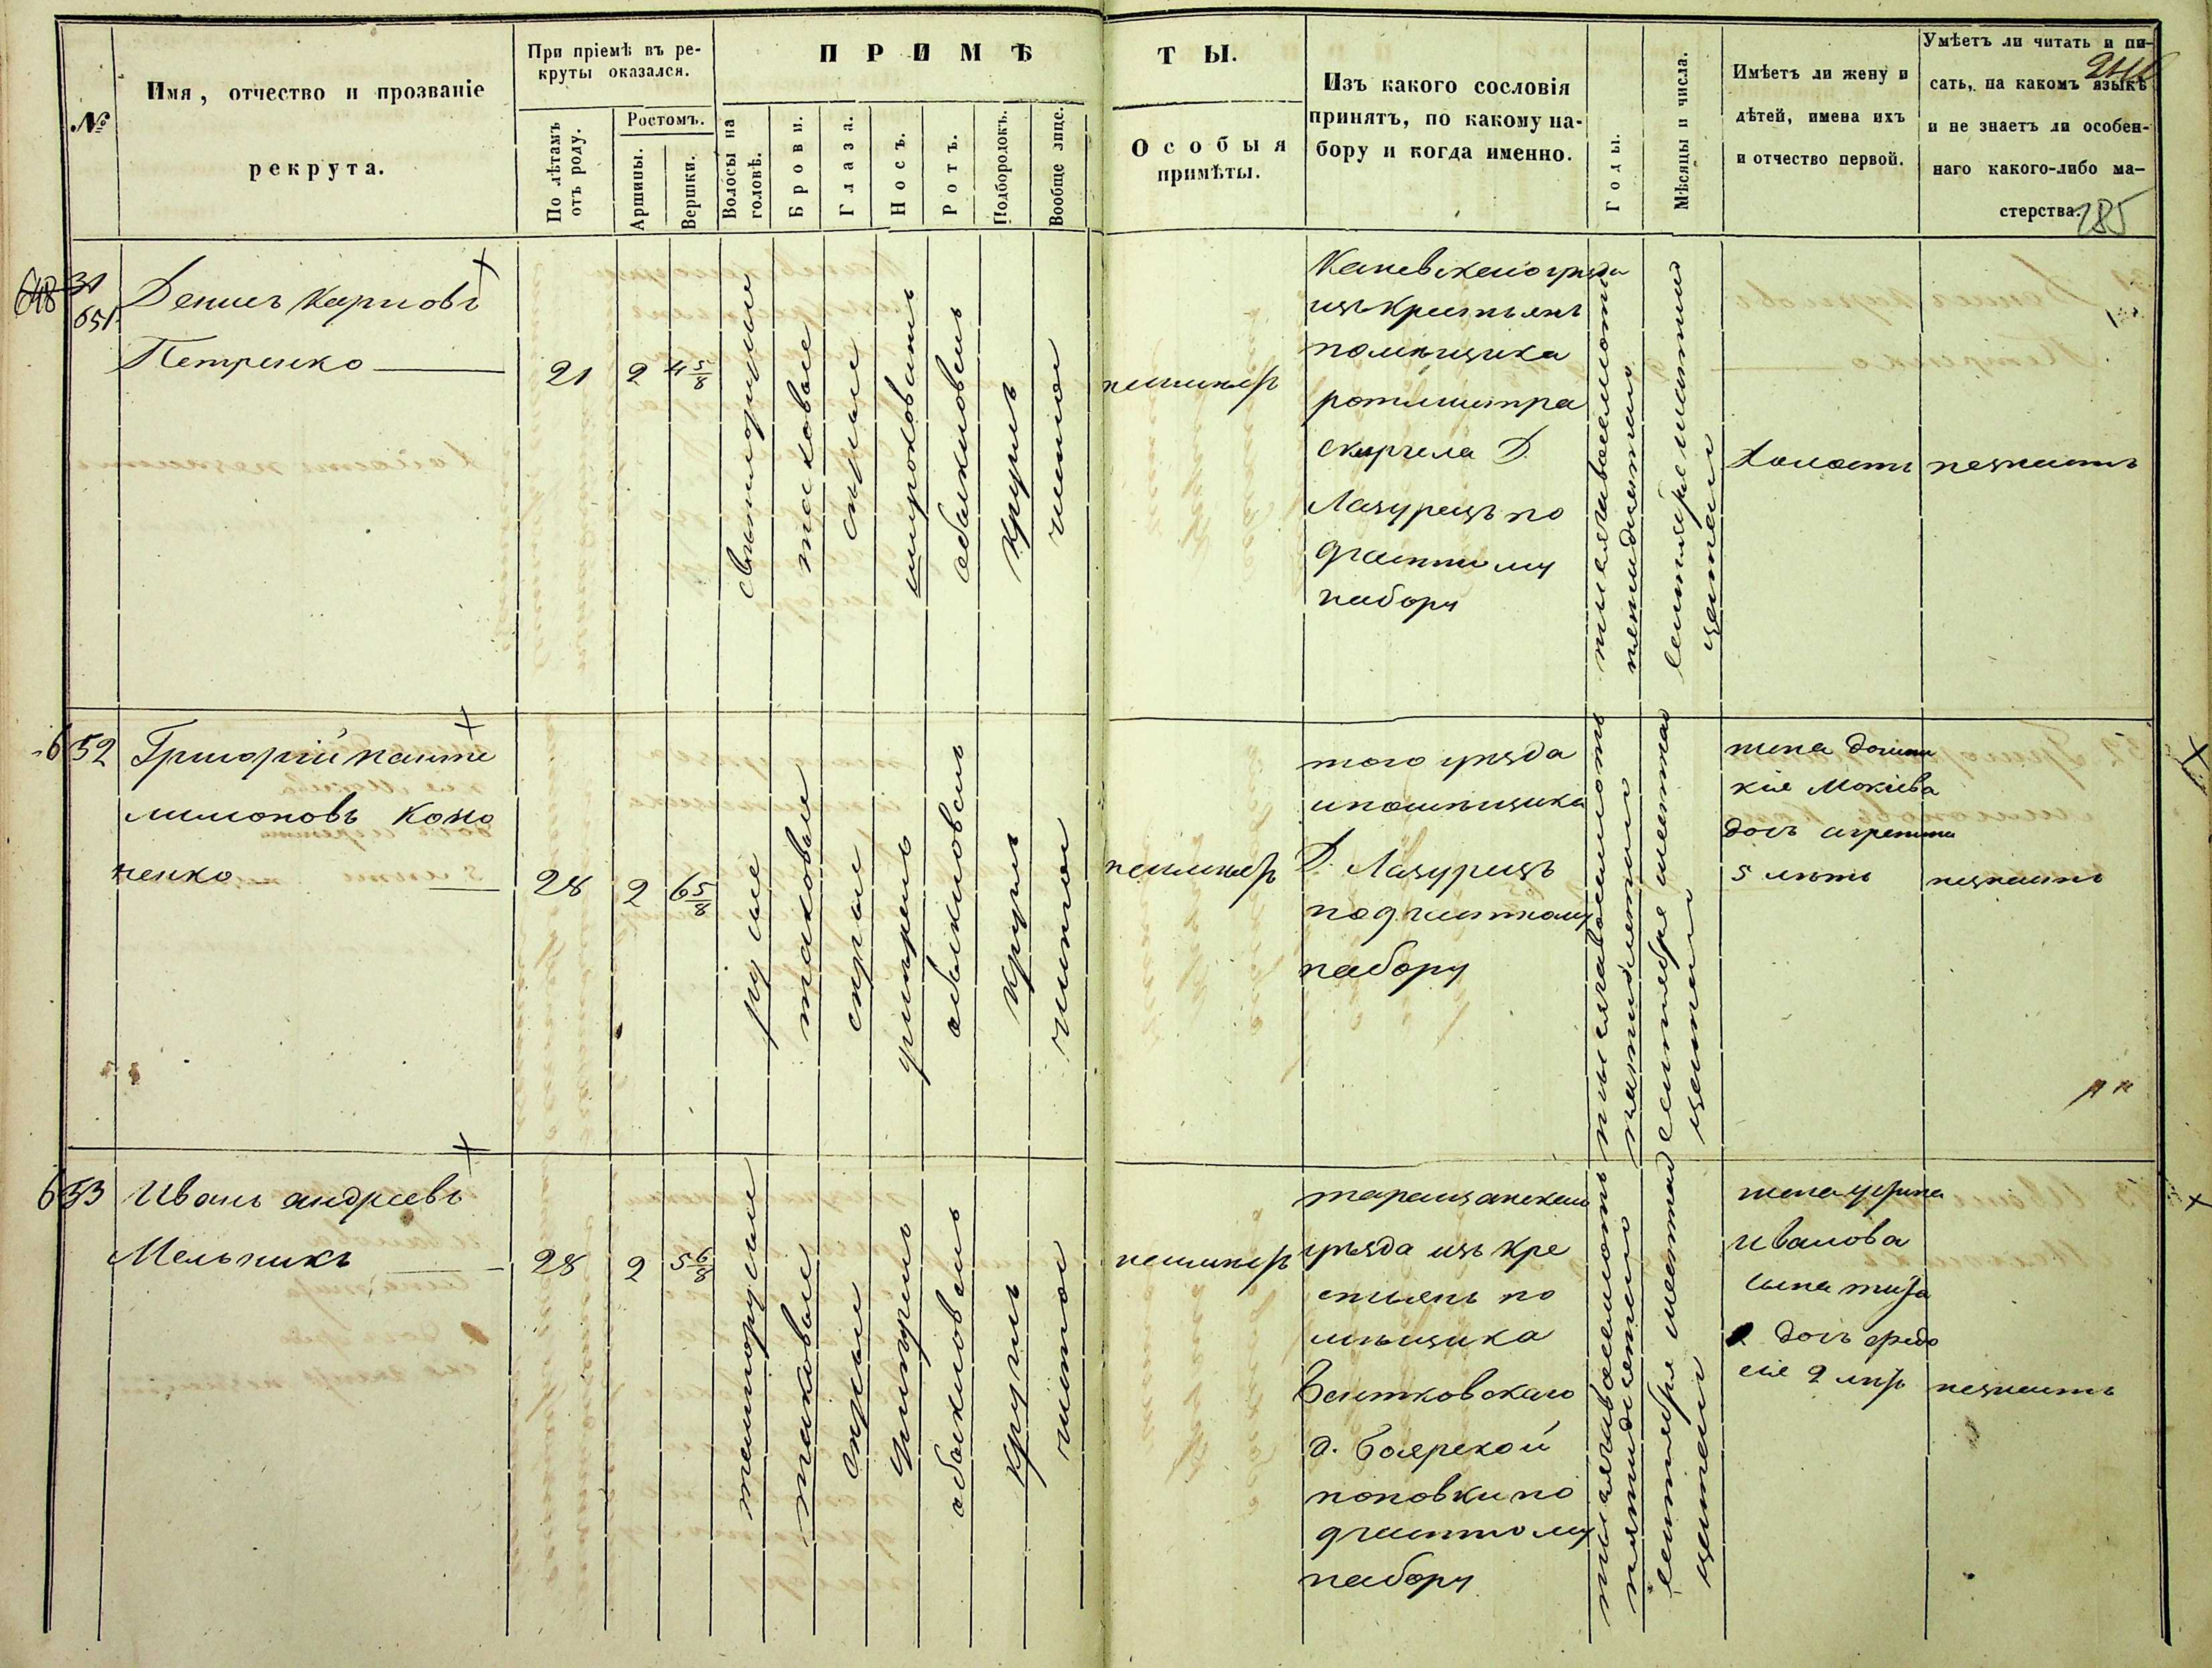 №
Имя, отчество и прозваніе
рекрута.
При пріемѣ въ ре-
круты оказался.
По лѣтамъ
отъ роду.
Ростомъ.
Аршины.
Вершки.
ПРИМѢ
ТЫ.
Волосы на
головѣ.
Брови.
Глаза.
Носъ.
Ротъ.
Подбородокъ.
Вообще лице.
Особыя
примѣты.
Изъ какого сословія
принятъ, по какому на-
бору и когда именно.
Годы.
Мѣсяцы и числа.
Имѣетъ ли жену и
дѣтей, имена ихъ
и отчество первой.
Умѣетъ ли читать и пи-
сать, на какомъ языкѣ
и не знаетъ ли особен-
наго какого-либо ма-
стерства.
185
648
31
651
Денисъ Карповъ
Петренко
21
2
4 5/8
светлорусые
таковые
серые
широковатъ
обыкновенъ
круглъ
чистое
неимѣетъ
Каневскаго уѣзда
изъ крестьянъ
помѣщика
ротмистра
Д.
Лазурецъ по
частному
набору
тысяча восемсотъ
пятидесятаго
сентября шестаго
надесять
Холостъ
незнаетъ
652
Григорій Панте
лимоновъ Коно
ненко
28
2
6 5/8
русые
таковые
серые
умѣренъ
обыкновенъ
круглъ
чистое
неимѣетъ
того уѣзда
ипомѣщика
Д. Лазурецъ
почастному
набору
тысяча восемсотъ
пятидесятаго
сентября шестаго
жена Домни
кія Мокіева
дочь агрепина
5 лѣтъ
незнаетъ
653
Иванъ андреевъ
Мельникъ
28
2
5 6/8
темнорусые
таковые
серые
умѣренъ
обыкновенъ
круглъ
чистое
неимѣетъ
таращанскаго
уѣзда изъ кре
стьянъ по
мѣщика
д. Боярской
поповки по
частному
набору
тысяча восемсотъ
пятидесятаго
сентября шестаго
Ивалова
дочь Федо
сія 2 лѣтъ
незнаетъ